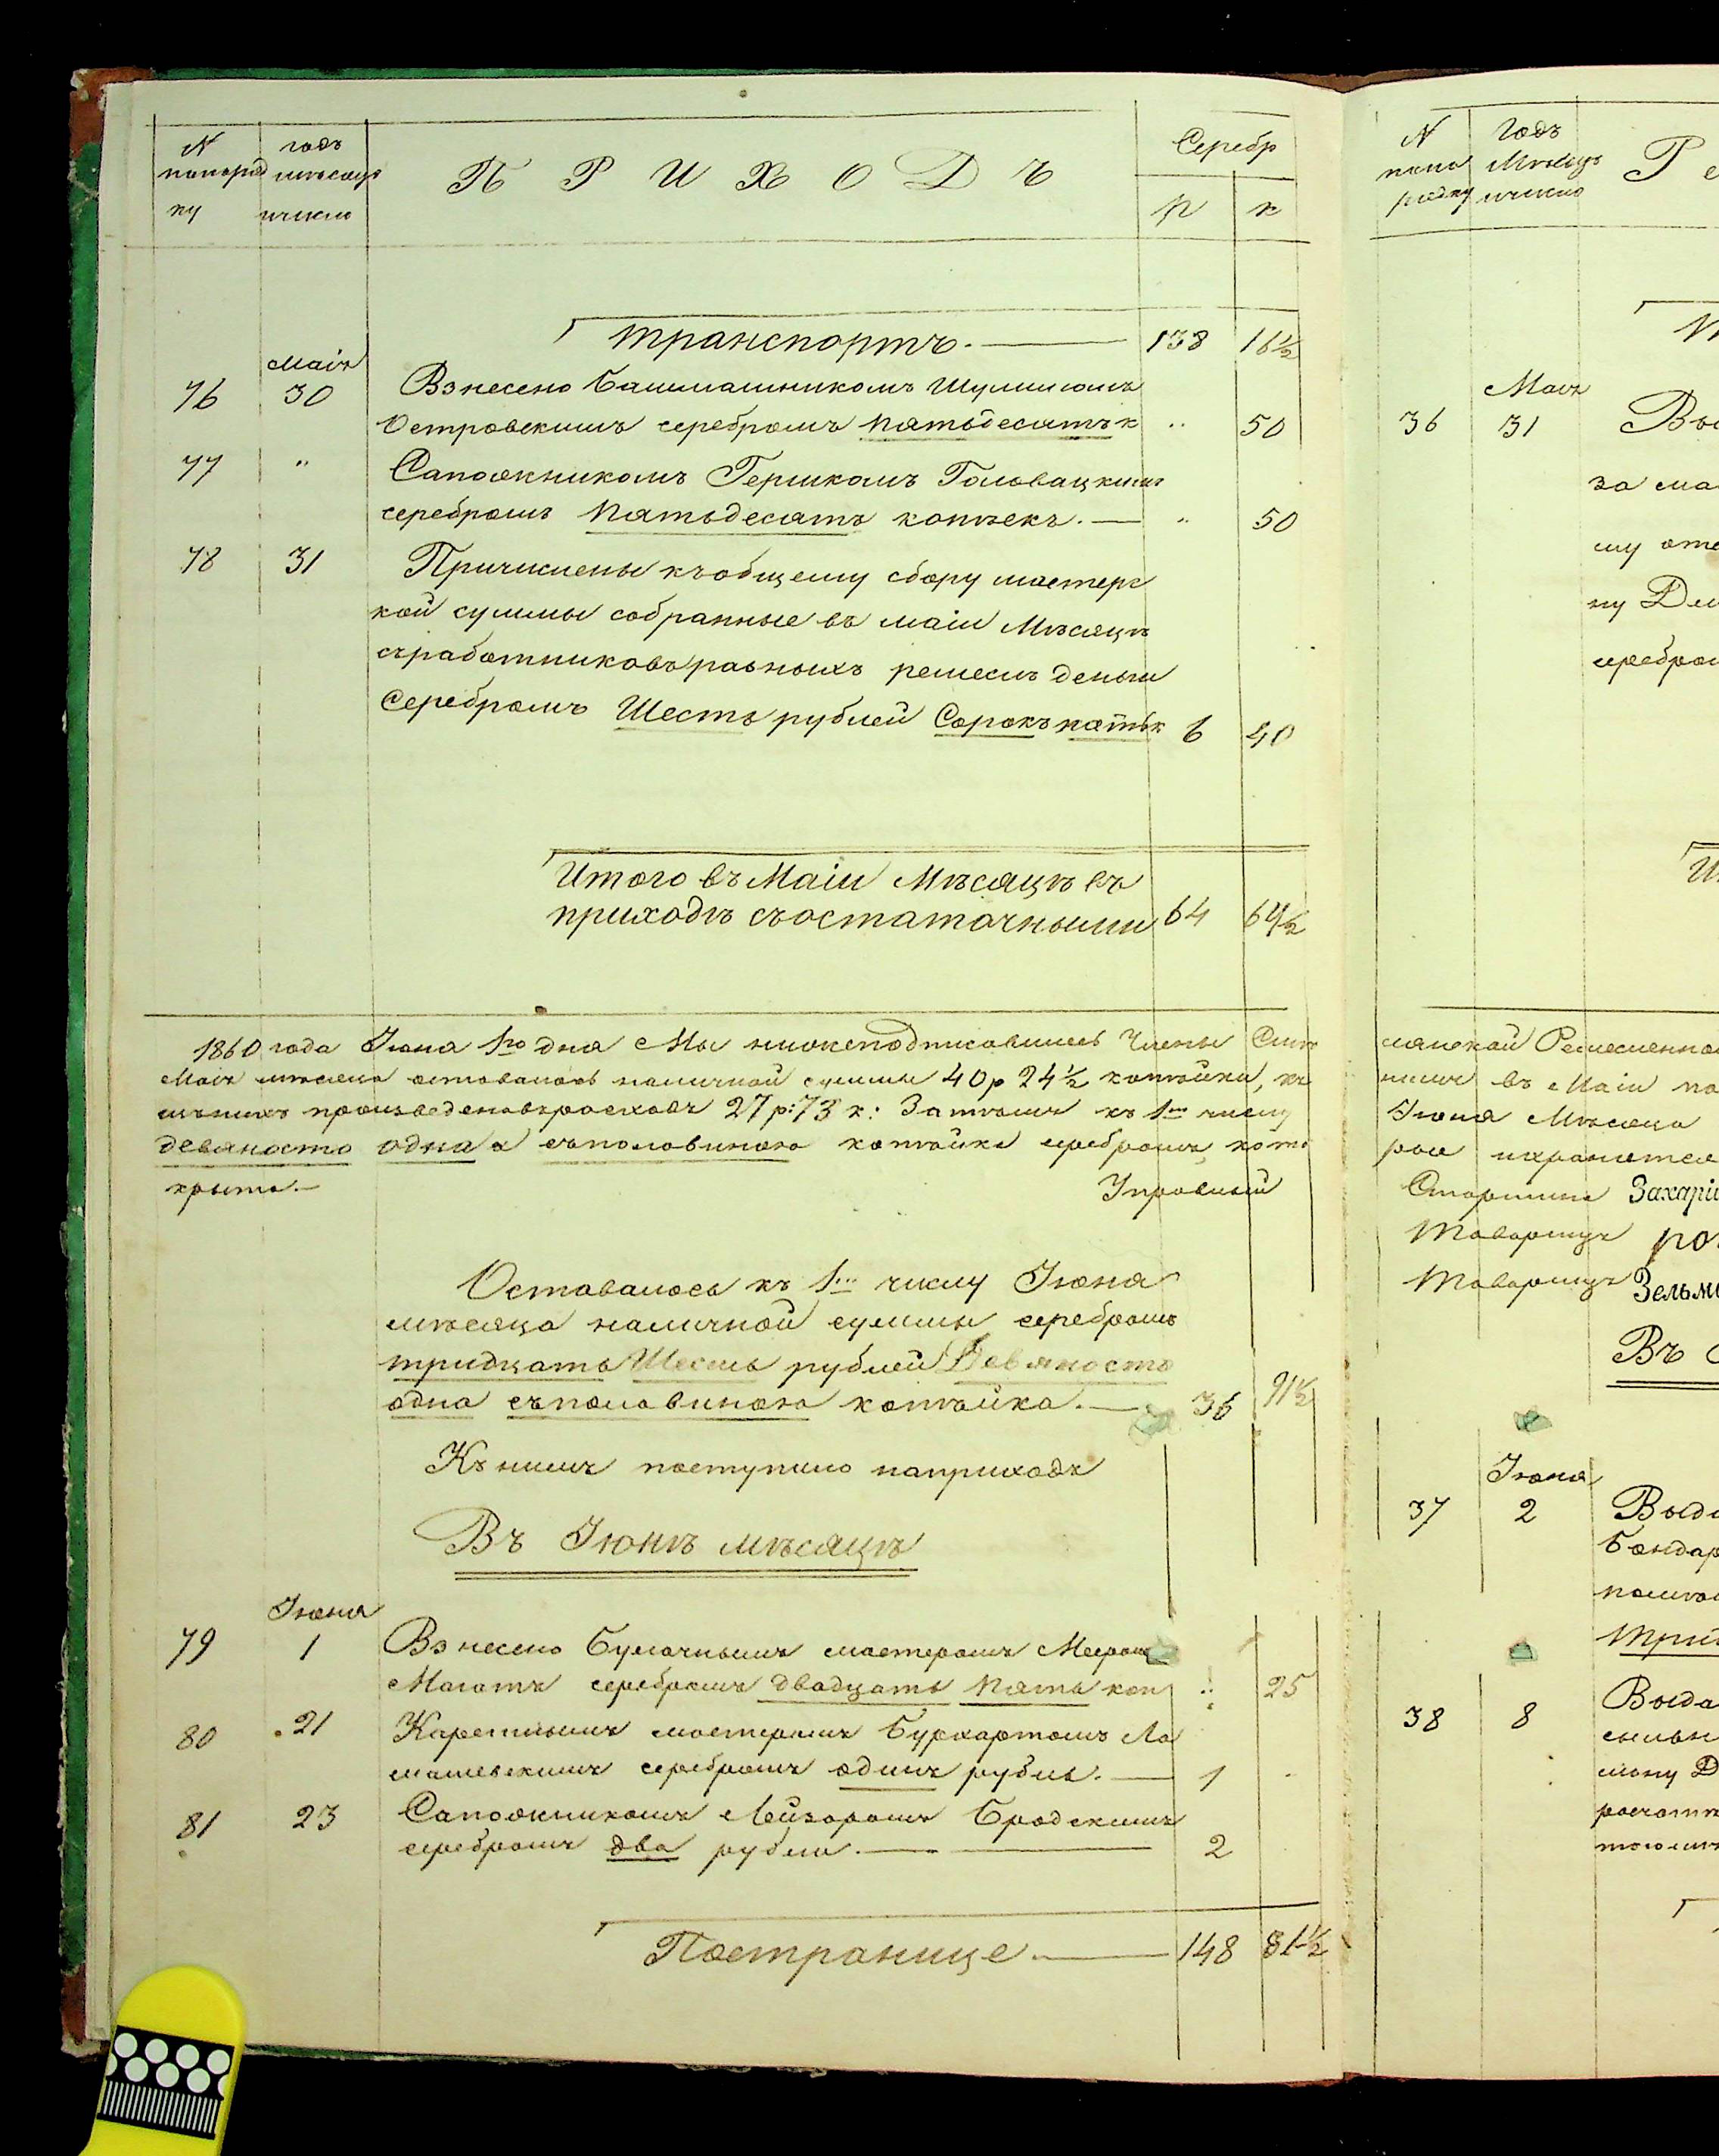 N годъ Серебр
попоряд мѣсяцъ П Р И Х О Д Ъ
ку ичисло р к
транспортъ. — 138 16½
Маія
76 30 Взнесено башмашникомъ Шулимомъ
Островскимъ серебромъ пятьдесятъ к " 50
77 " Сапожникомъ Гершкомъ Головацкимъ
серебромъ пятьдесятъ копѣекъ. — " 50
78 31 Причислены къобщему сбору мастерс
кой суммы собранные въ маіи мѣсяцѣ
съработниковъ разныхъ ремеслъ деньги
Серебромъ Шесть рублей Сорокъ пять к 6 40
Итого въ Маіи Мѣсяцѣ въ
приходѣ съостаточными 64 64½
1860 года Іюна 1го дня Мы нижеподписавшиесь Члены
Маія мѣсяца оставалось наличной суммы 40 р 24½ копѣйки, къ
произведеновърасходъ 27 р: 73 к: Затѣмъ къ 1му числу
девяносто одна а съполовиною копѣйки серебромъ, кото
крыта. — Управный
Оставалось къ 1му числу Іюна
мѣсяца наличной суммы серебромъ
тридцать Шесть рублей Девяносто
одна съполовиною копѣйка. — 36 91½
Къ нимъ поступило наприходъ
Въ Іюнѣ мѣсяцѣ
Іюна
79 1 Взнесено Булочнымъ мастеромъ Меером
Магатъ серебромъ двадцать пять коп " 25
80 21 Каретнымъ мастеромъ Буркартомъ Ло
машевскимъ серебромъ одинъ рубль. — 1 "
81 23 Сапожникомъ Лейзоромъ Бродскимъ
серебромъ два рубли. — 2
Постранице — 148 81½
N Годъ
попо Мѣсяцъ Р
рядку ичисло
Маія
36 31 Вы
за ма
му от
ну Дм
серебром
сянской Ремесленной
нимъ въ Маіи по
Іюна Мѣсяца
рые ихранится
Старшина Захарі
Товарищъ
Товарищъ Зельм
Въ
Іюна
37 2 Выда
Бондар
Три
38 8 Выда
мону Д